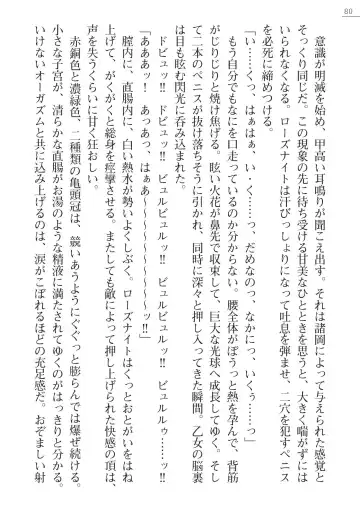 80
意識が明滅を始め、甲高い耳鳴りが聞こえ出す。それは諸岡によって与えられた感覚と
そっくり同じだ。この現象の先に待ち受ける甘美なひとときを思うと、大きく喘がずには
いられなくなる。ローズナイトは汗びっしょりになって吐息を弾ませ、二穴を犯すペニス
を必死に締めつける。
「い……くっ、はぁはぁ、い、く……っ、だめなのっ、なかにっ、いくぅ……っ」
もう自分でもなにを口走っているのか分からない。腰全体がぼうっと熱を孕んで、背筋
がじりじりと焼け焦げる。眩い火花が鼻先で収束して、巨大な光球へ成長してゆく。そし
て二本のペニスが抜け落ちそうに引かれ、同時に深々と押し入った瞬間。乙女の脳裏
は目も眩む閃光に呑み込まれた。
ドビュッ!! ドビュルッ!! ビュルビュルッ!! ビュルルゥ……ッ!!
「あああッ！ あっあっ、はぁあ〜〜〜〜〜〜〜ッ!!」
膣内に、直腸内に、白い熱水が勢いよくしぶく。ローズナイトはくっとおとがいをはね
上げて、がくがくと総身を痙攣させる。またしても敵によって押し上げられた快感の頂は、
声を失うくらいに甘く狂おしい。
赤銅色と濃緑色、二種類の亀頭冠は、競いあうようにぐぐっと膨らんでは爆ぜ続ける。
小さな子宮が、清らかな直腸がお湯のような精液に満たされてゆくのがはっきりと分かる。
いけないオーガズムと共に込み上げるのは、涙がこぼれるほどの充足感だ。おぞましい射